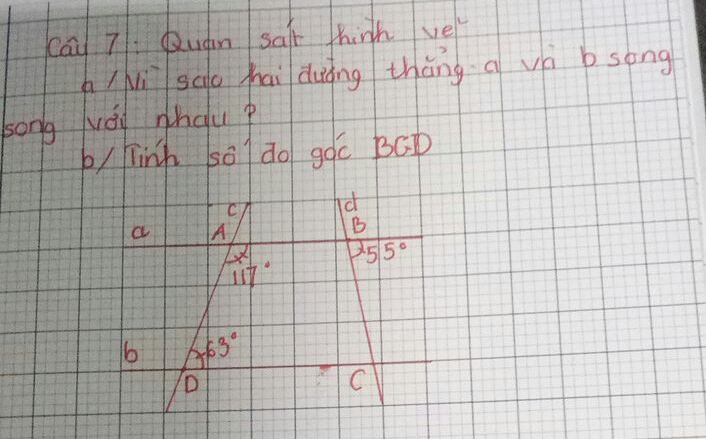 Câu 7: Quan sát hình vẽ
a/ Vì sao hai đường thẳng a và b song
song với nhau?
b/ Tính số đo góc BCD
c d
a A B
117° 55°
b 63°
D C